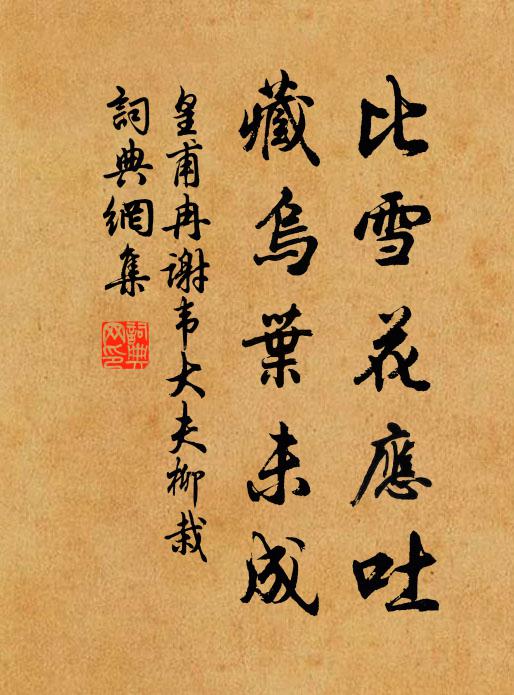 比雪花應吐
藏烏葉未成
皇甫冉謝韦大夫柳栽
詞典網集
詞典网印